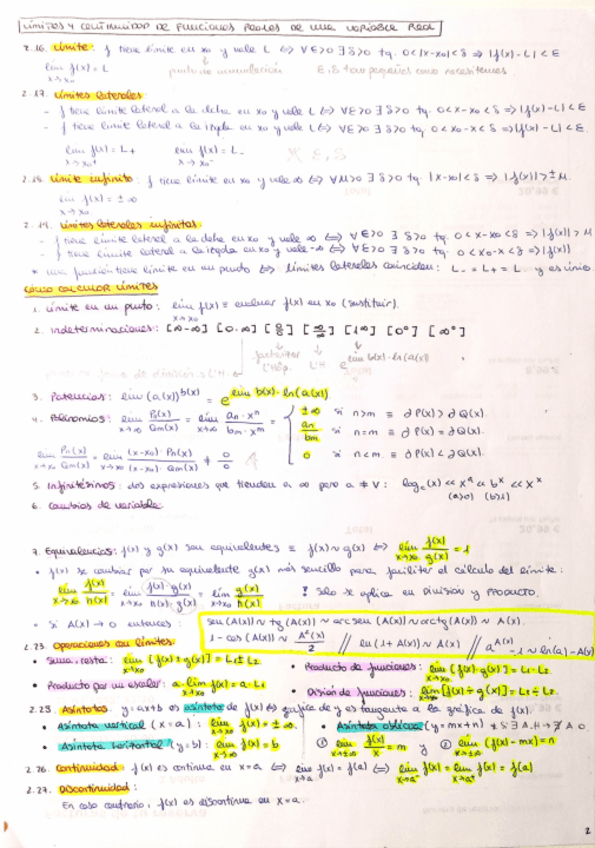 LÍMITES Y CONTINUIDAD DE FUNCIONES REALES DE UNA VARIABLE REAL
2.16. Límite: f tiene límite en x₀ y vale L ⟺ ∀ε>0 ∃δ>0 tq. 0<|x-x₀|<δ ⇒ |f(x)-L|<ε
lim x→x₀ f(x)=L punto de acumulación ε, δ tan pequeños como necesitemos
2.17. Límites laterales:
- f tiene límite lateral a la dcha en x₀ y vale L ⟺ ∀ε>0 ∃δ>0 tq. 0<x-x₀<δ ⇒ |f(x)-L|<ε
- f tiene límite lateral a la izqda en x₀ y vale L ⟺ ∀ε>0 ∃δ>0 tq. 0<x₀-x<δ ⇒ |f(x)-L|<ε.
lim x→x₀⁺ f(x)=L₊ lim x→x₀⁻ f(x)=L₋ ε, δ
2.18. Límite infinito: f tiene límite en x₀ y vale ∞ ⟺ ∀M>0 ∃δ>0 tq. |x-x₀|<δ ⇒ |f(x)|>±M.
lim x→x₀ f(x)=±∞
2.19. Límites laterales infinitos.
- f tiene límite lateral a la dcha en x₀ y vale ∞ ⟺ ∀ε>0 ∃δ>0 tq. 0<x-x₀<δ ⇒ |f(x)|>M
- f tiene límite lateral a la izqda en x₀ y vale -∞ ⟺ ∀ε>0 ∃δ>0 tq. 0<x₀-x<δ ⇒ |f(x)|
* una función tiene límite en un punto ⟺ límites laterales coinciden: L₋=L₊=L y es único
CÓMO CALCULAR LÍMITES
1. Límite en un punto: lim x→x₀ f(x) ≡ evaluar f(x) en x₀ (sustituir).
2. Indeterminaciones: [∞-∞] [0·∞] [0/0] [∞/∞] [1^∞] [0⁰] [∞⁰]
factorizar L'Hôp. L'H e^(lim b(x)·ln(a(x)))
3. Potencias: lim (a(x))^b(x) = e^(lim b(x)·ln(a(x)))
4. Polinomios: lim x→∞ Pn(x)/Qm(x) = lim x→∞ an·xⁿ/bm·xᵐ = ±∞ si n>m ≡ ∂P(x)>∂Q(x).
an/bm si n=m ≡ ∂P(x)=∂Q(x).
0 si n<m ≡ ∂P(x)<∂Q(x).
lim x→x₀ Pn(x)/Qm(x) = lim x→x₀ (x-x₀)·Pn(x)/(x-x₀)·Qm(x) ≠ 0/0
5. Infinitésimos: dos expresiones que tienden a ∞ pero a ≠ v: logc(x) ≪ xᵃ ≪ bˣ ≪ xˣ
(a>0) (b>1)
6. Cambios de variable.
7. Equivalencias: f(x) y g(x) son equivalentes ≡ f(x)∼g(x) ⟺ lim x→x₀ f(x)/g(x) = 1
• f(x) se cambiar por su equivalente g(x) más sencillo para facilitar el cálculo del límite:
lim x→x₀ f(x)/h(x) = lim x→x₀ f(x)·g(x)/h(x)·g(x) = lim x→x₀ g(x)/h(x) ! Solo se aplica en DIVISIÓN y PRODUCTO.
• Si A(x)→0 entonces: sen(A(x)) ∼ tg(A(x)) ∼ arcsen(A(x)) ∼ arctg(A(x)) ∼ A(x).
1-cos(A(x)) ∼ A²(x)/2 // ln(1+A(x)) ∼ A(x) // a^A(x) -1 ∼ ln(a)·A(x)
2.23. Operaciones con límites:
• Suma, resta: lim x→x₀ [f(x)±g(x)] = L₁±L₂. • Producto de funciones: lim x→x₀ [f(x)·g(x)] = L₁·L₂.
• Producto por un escalar: a·lim x→x₀ f(x) = a·L₁ • División de funciones: lim x→x₀ [f(x)÷g(x)] = L₁÷L₂.
2.25. Asíntotas: y=ax+b es asíntota de f(x) ⟺ gráfica de y es tangente a la gráfica de f(x).
• Asíntota vertical (x=a): lim x→a f(x)=±∞. • Asíntota oblicua (y=mx+n) * Si ∃ A.H → ∄ A.O
• Asíntota horizontal (y=b): lim x→∞ f(x)=b ① lim x→±∞ f(x)/x = m y ② lim x→±∞ (f(x)-mx)=n
2.26. Continuidad: f(x) es continua en x=a ⟺ lim x→a f(x)=f(a) ⟺ lim x→a⁻ f(x)=lim x→a⁺ f(x)=f(a)
2.27. Discontinuidad:
En caso contrario, f(x) es discontinua en x=a.
2